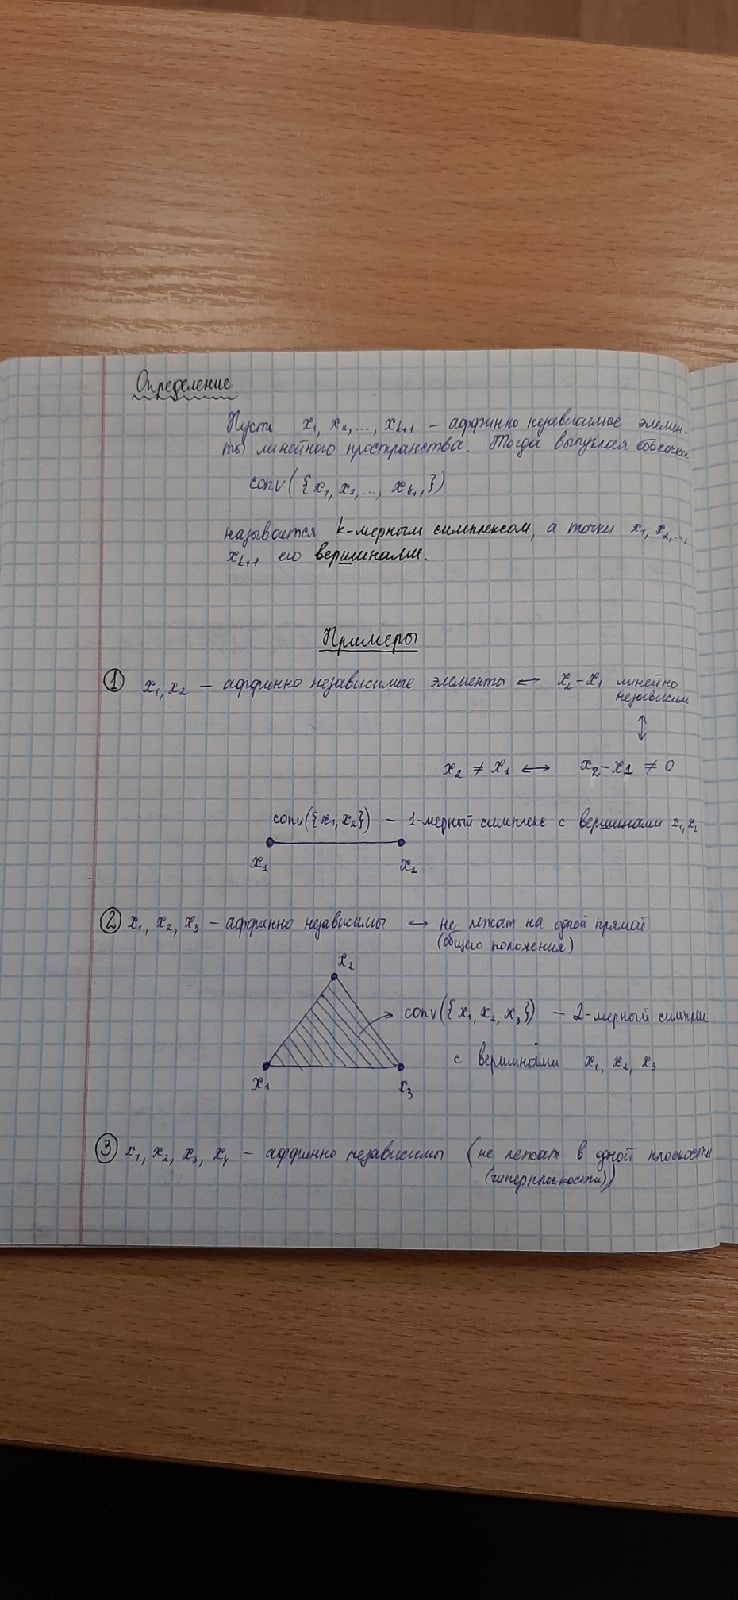 Определение
Пусть x₁, x₂, ..., xₖ₊₁ – аффинно независимые элемен-
ты линейного пространства. Тогда выпуклая оболочка
conv({x₁, x₂, ..., xₖ₊₁})
называется k-мерным симплексом, а точки x₁, x₂, ...,
xₖ₊₁ его вершинами.
Примеры
① x₁, x₂ – аффинно независимые элементы ↔ x₂-x₁ линейно
независим
↕
x₂ ≠ x₁ ↔ x₂-x₁ ≠ 0
conv({x₁, x₂}) – 1-мерный симплекс с вершинами x₁, x₂
x₁ x₂
② x₁, x₂, x₃ – аффинно независимы ↔ не лежат на одной прямой
(общего положения)
x₂
conv({x₁, x₂, x₃}) – 2-мерный симплекс
с вершинами x₁, x₂, x₃
x₁ x₃
③ x₁, x₂, x₃, x₄ – аффинно независимы (не лежат в одной плоскости
(гиперплоскости))